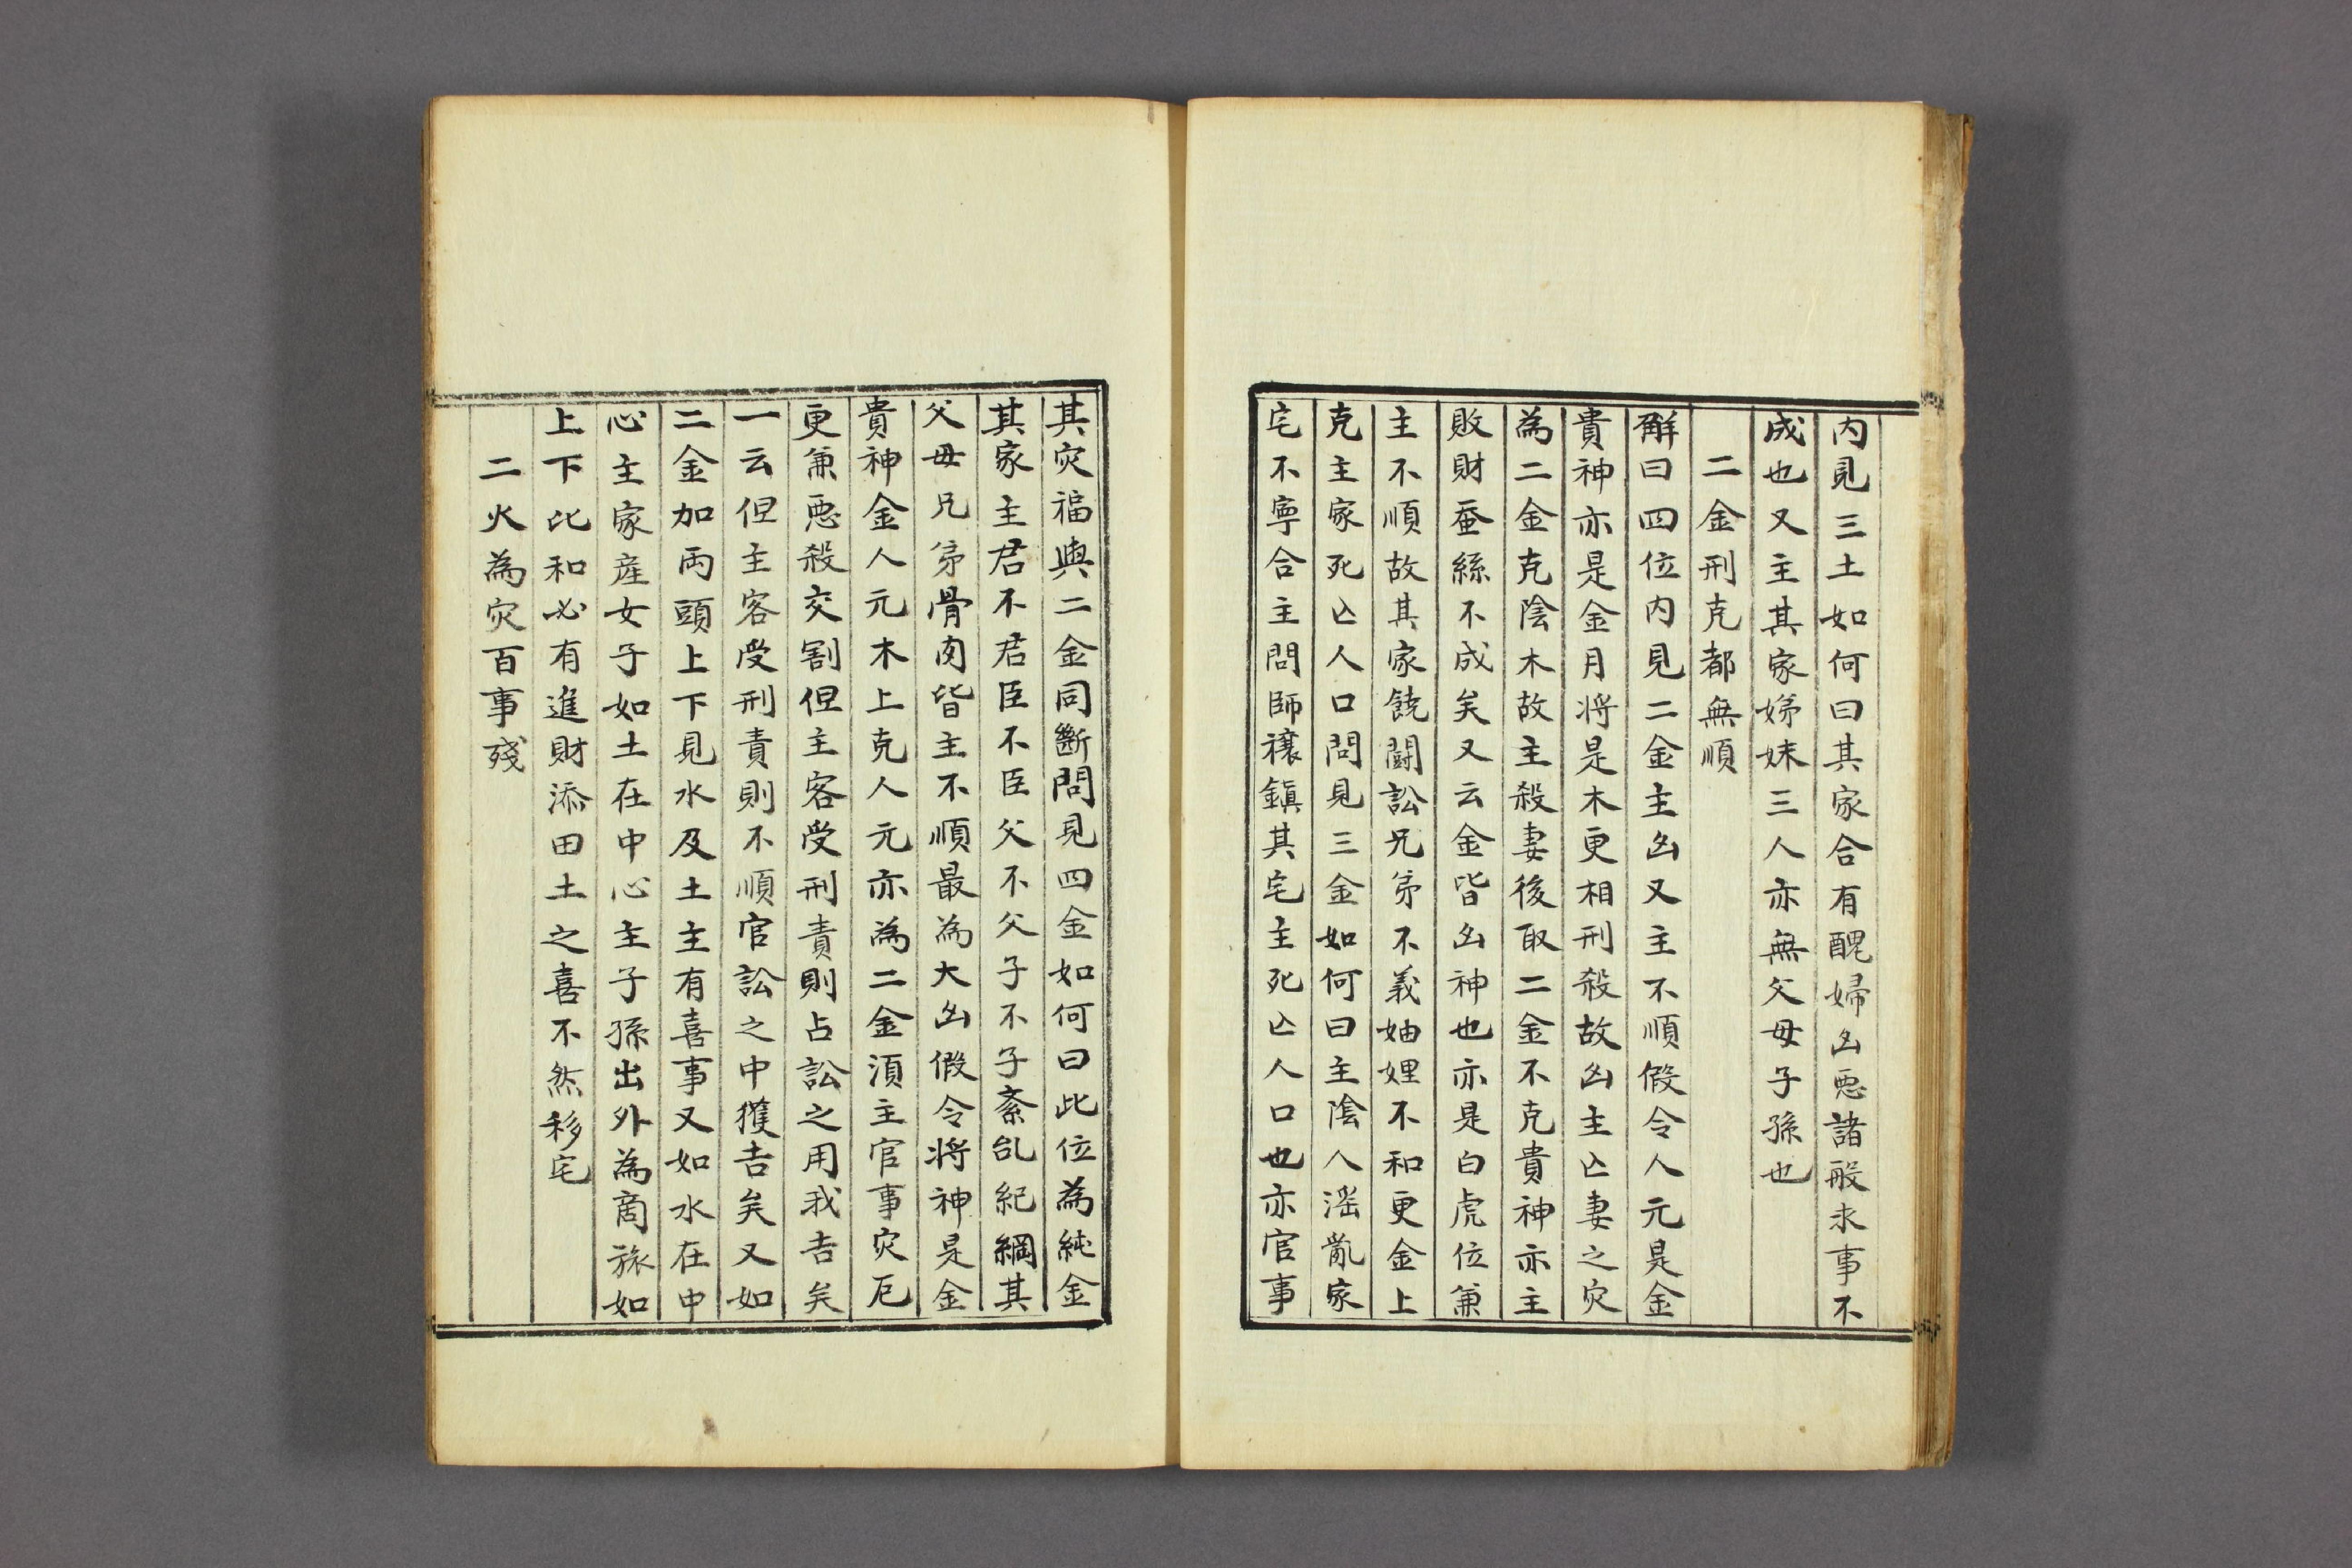 内見三土如何曰其家合有醜婦凶惡諸般求事不
成也又主其家娣妹三人亦無父母子孫也
二金刑克都無順
解曰四位内見二金主凶又主不順假令人元是金
貴神亦是金月将是木更相刑殺故凶主亡妻之灾
為二金克陰木故主殺妻後取二金不克貴神亦主
敗財蚕絲不成矣又云金皆凶神也亦是白虎位兼
主不順故其家饒鬭訟兄弟不義妯娌不和更金上
克主家死亡人口問見三金如何曰主陰人滛亂家
宅不寧合主問師禳鎮其宅主死亡人口也亦官事
其灾福與二金同斷問見四金如何曰此位為純金
其家主君不君臣不臣父不父子不子紊乱紀綱其
父母兄弟骨肉皆主不順最為大凶假令将神是金
貴神金人元木上克人元亦為二金湏主官事灾厄
更兼惡殺交割但主客受刑責則占訟之用我吉矣
一云但主客受刑責則不順官訟之中獲吉矣又如
二金加両頭上下見水及土主有喜事又如水在中
心主家産女子如土在中心主子孫出外為商旅如
上下比和必有進財添田土之喜不然移宅
二火為灾百事殘